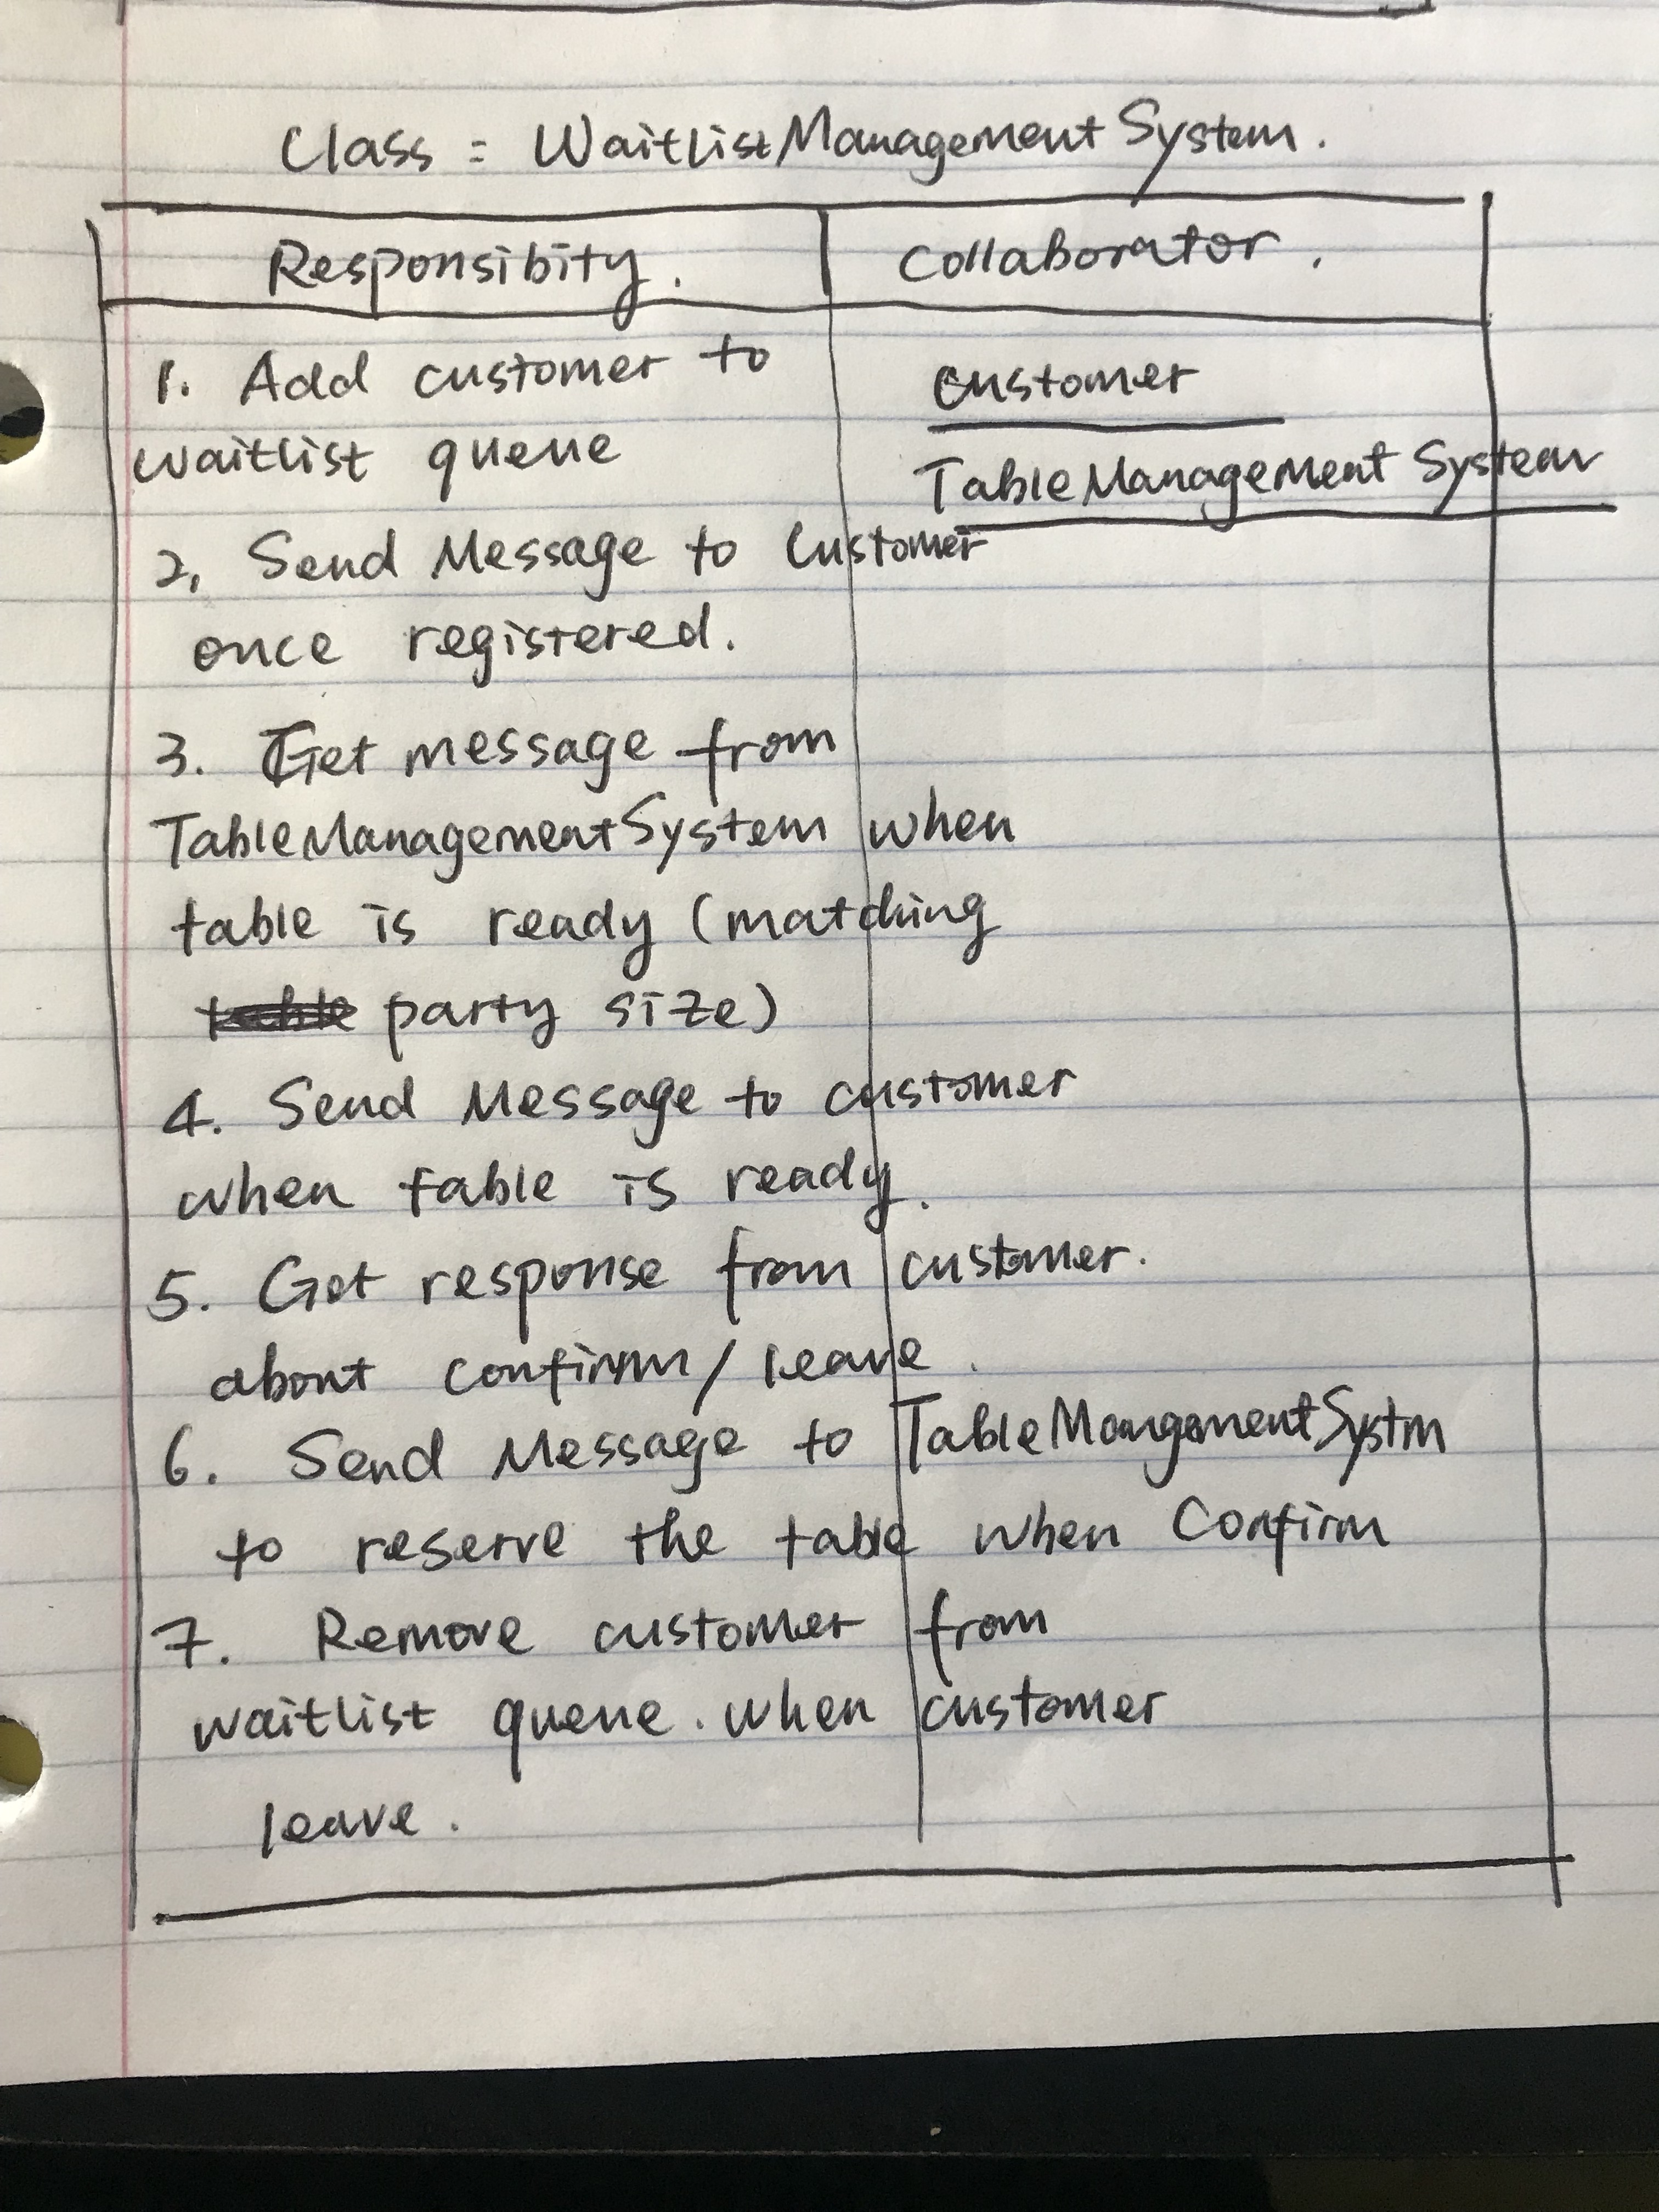 Class = WaitlistManagementSystem.
Responsibity. Collaborator.
1. Add customer to
waitlist queue
customer
TableManagement System
2, Send Message to Customer
once registered.
3. Get message from
TableManagementSystem when
table is ready (matching
party size)
4. Send Message to customer
when table is ready.
5. Get response from customer.
about confirm/leave.
6. Send Message to TableMangementSystm
to reserve the table when Confirm
7. Remove customer from
waitlist queue. when customer
leave.